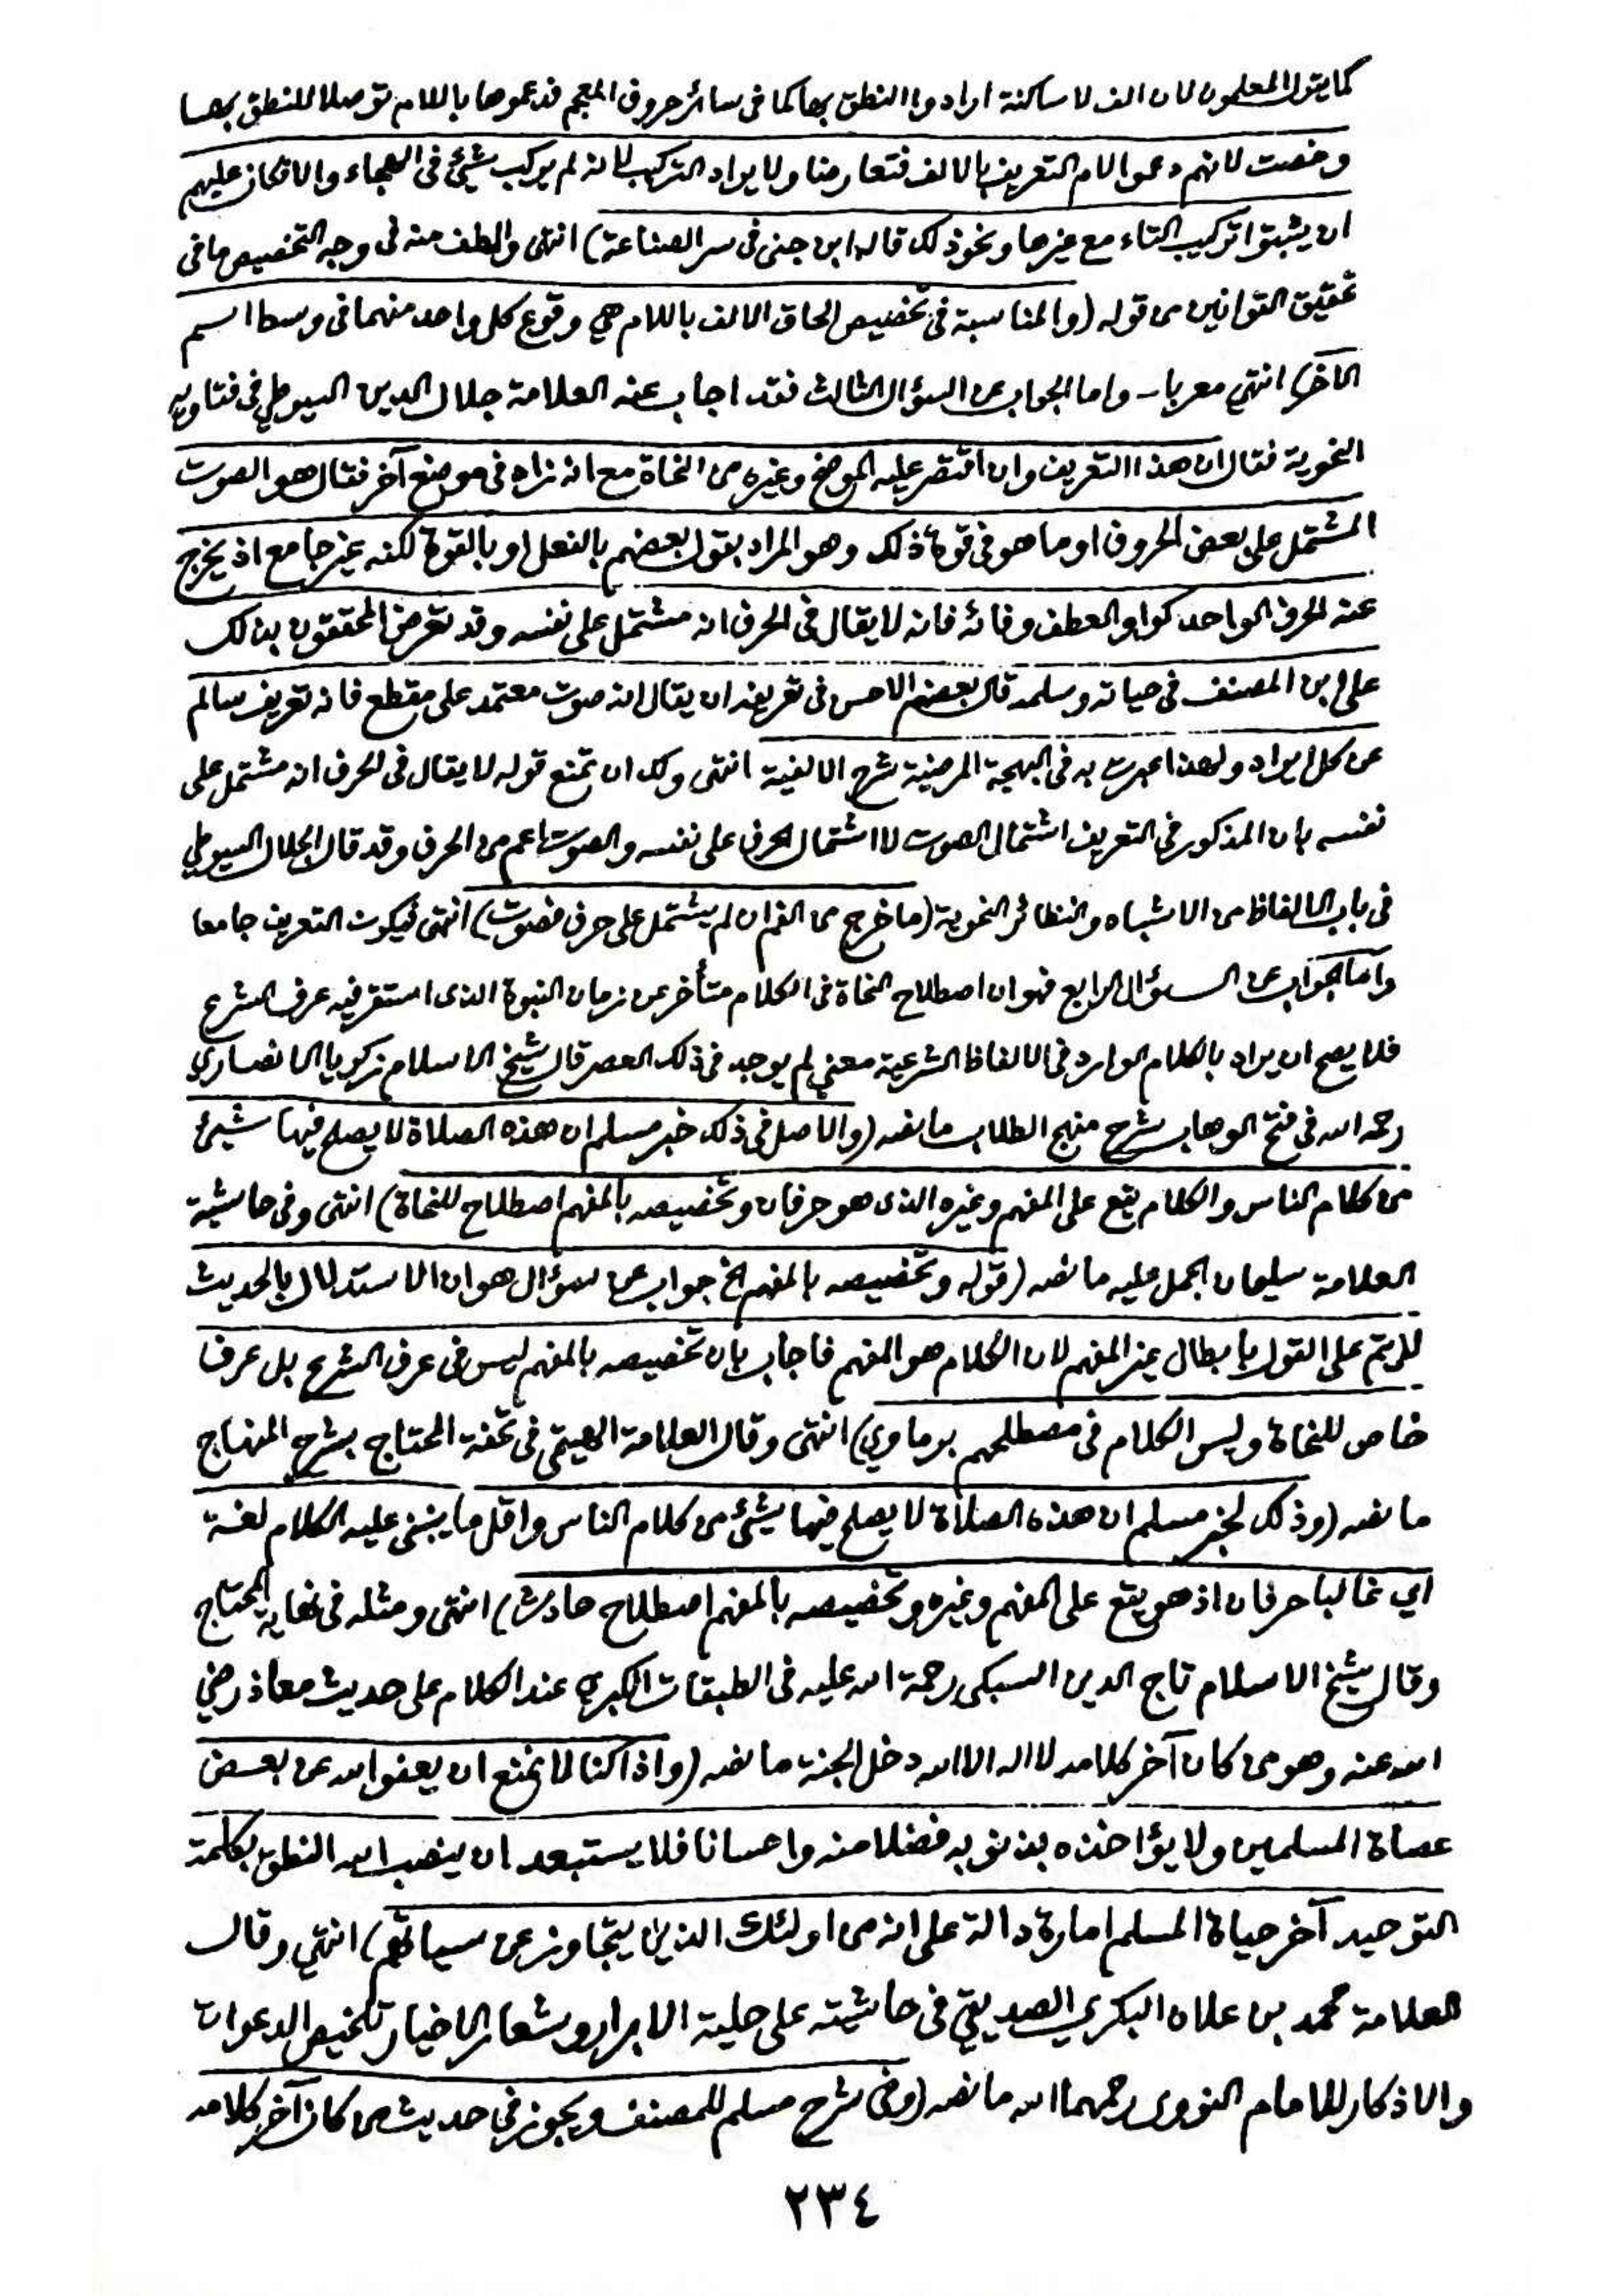 كما يقول المعلمون لان الف لا ساكنة ارادوا النطق بها كما فى سائر حروف المعجم فدعموها باللام توصلا للنطق بها
وخصت لانهم دعموا لام التعريف بالالف فتعارضا ولا يراد التركيب لانه لم يركب شيئ فى الهجاء والا فكان عليهم
ان يثبتوا تركيب التاء مع غيرها ونحو ذلك قاله ابن جنى فى سر الصناعة) انتهى والطف منه فى وجه التخصيص ما فى
تحقيق القوانين من قوله (والمناسبة فى تخصيص الحاق الالف باللام هي وقوع كل واحد منهما فى وسط اسم
الآخر) انتهى معربا - واما الجواب عن السؤال الثالث فقد اجاب عنه العلامة جلال الدين السيوطي فى فتاويه
النحوية فقال ان هذا التعريف وان اقتصر عليه الموضح وغيره من النحاة مع انه زاه فى موضع آخر فقال هو الصوت
المشتمل على بعض الحروف او ما هو فى قوة ذلك وهو المراد بقول بعضهم بالفعل او بالقوة لكنه غير جامع اذ يخرج
عنه الحرف الواحد كواو العطف وفائه فانه لا يقال فى الحرف انه مشتمل على نفسه وقد تعرض المحققون بذلك
على ابن المصنف فى حياته وسلمه قال بعضهم الاحسن فى تعريفه ان يقال انه صوت معتمد على مقطع فانه تعريف سالم
عن كل ايراد ولهذا عبرت به فى البهجة المرضية شرح الالفية انتهى ولك ان تمنع قوله لا يقال فى الحرف انه مشتمل على
نفسه بان المذكور فى التعريف اشتمال الصوت لا اشتمال الحرف على نفسه والصوت اعم من الحرف وقد قال الجلال السيوطي
فى باب الالفاظ من الاشباه والنظائر النحوية (ما خرج من الفم ان لم يشتمل على حرف فصوت) انتهى فيكون التعريف جامعا
واما الجواب عن السؤال الرابع فهو ان اصطلاح النحاة فى الكلام متأخر عن زمان النبوة الذى استقر فيه عرف الشرع
فلا يصح ان يراد بالكلام الوارد فى الالفاظ الشرعية معنى لم يوجد فى ذلك العصر قال شيخ الاسلام زكريا الانصاري
رحمه الله فى فتح الوهاب بشرح منهج الطلاب ما نصه (والاصل فى ذلك خبر مسلم ان هذه الصلاة لا يصلح فيها شيئ
من كلام الناس والكلام يقع على المفهم وغيره الذى هو حرفان وتخصيصه بالمفهم اصطلاح للنحاة) انتهى وفى حاشية
العلامة سليمان الجمل عليه ما نصه (قوله وتخصيصه بالمفهم الخ جواب عن سؤال هو ان الاستدلال بالحديث
لا يتم على القول بابطال غير المفهم لان الكلام هو المفهم فاجاب بان تخصيصه بالمفهم ليس فى عرف الشرع بل عرف
خاص للنحاة وليس الكلام فى مصطلحهم برماوي) انتهى وقال العلامة الهيتمى فى تحفة المحتاج بشرح المنهاج
ما نصه (وذلك لخبر مسلم ان هذه الصلاة لا يصلح فيها شيئ من كلام الناس واقل ما ينبنى عليه الكلام لغة
اي غالبا حرفان اذ هو يقع على المفهم وغيره وتخصيصه بالمفهم اصطلاح حادث) انتهى ومثله فى نهاية المحتاج
وقال شيخ الاسلام تاج الدين السبكى رحمة الله عليه فى الطبقات الكبرى عند الكلام على حديث معاذ رضي
الله عنه وهو من كان آخر كلامه لا اله الا الله دخل الجنة ما نصه (واذا كنا لا نمنع ان يعفوا الله عن بعض
عصاة المسلمين ولا يؤاخذه بذنوبه فضلا منه واحسانا فلا يستبعد ان ينصب الله النطق بكلمة
التوحيد آخر حياة المسلم امارة دالة على انه من اولئك الذين يتجاوز عن سيياتهم) انتهى وقال
العلامة محمد بن علان البكري الصديقي فى حاشيته على حلية الابرار وشعار الاخيار تلخيص الدعوات
والاذكار للامام النووى رحمهما الله ما نصه (وفى شرح مسلم للمصنف ويجوز فى حديث من كان آخر كلامه
٢٣٤